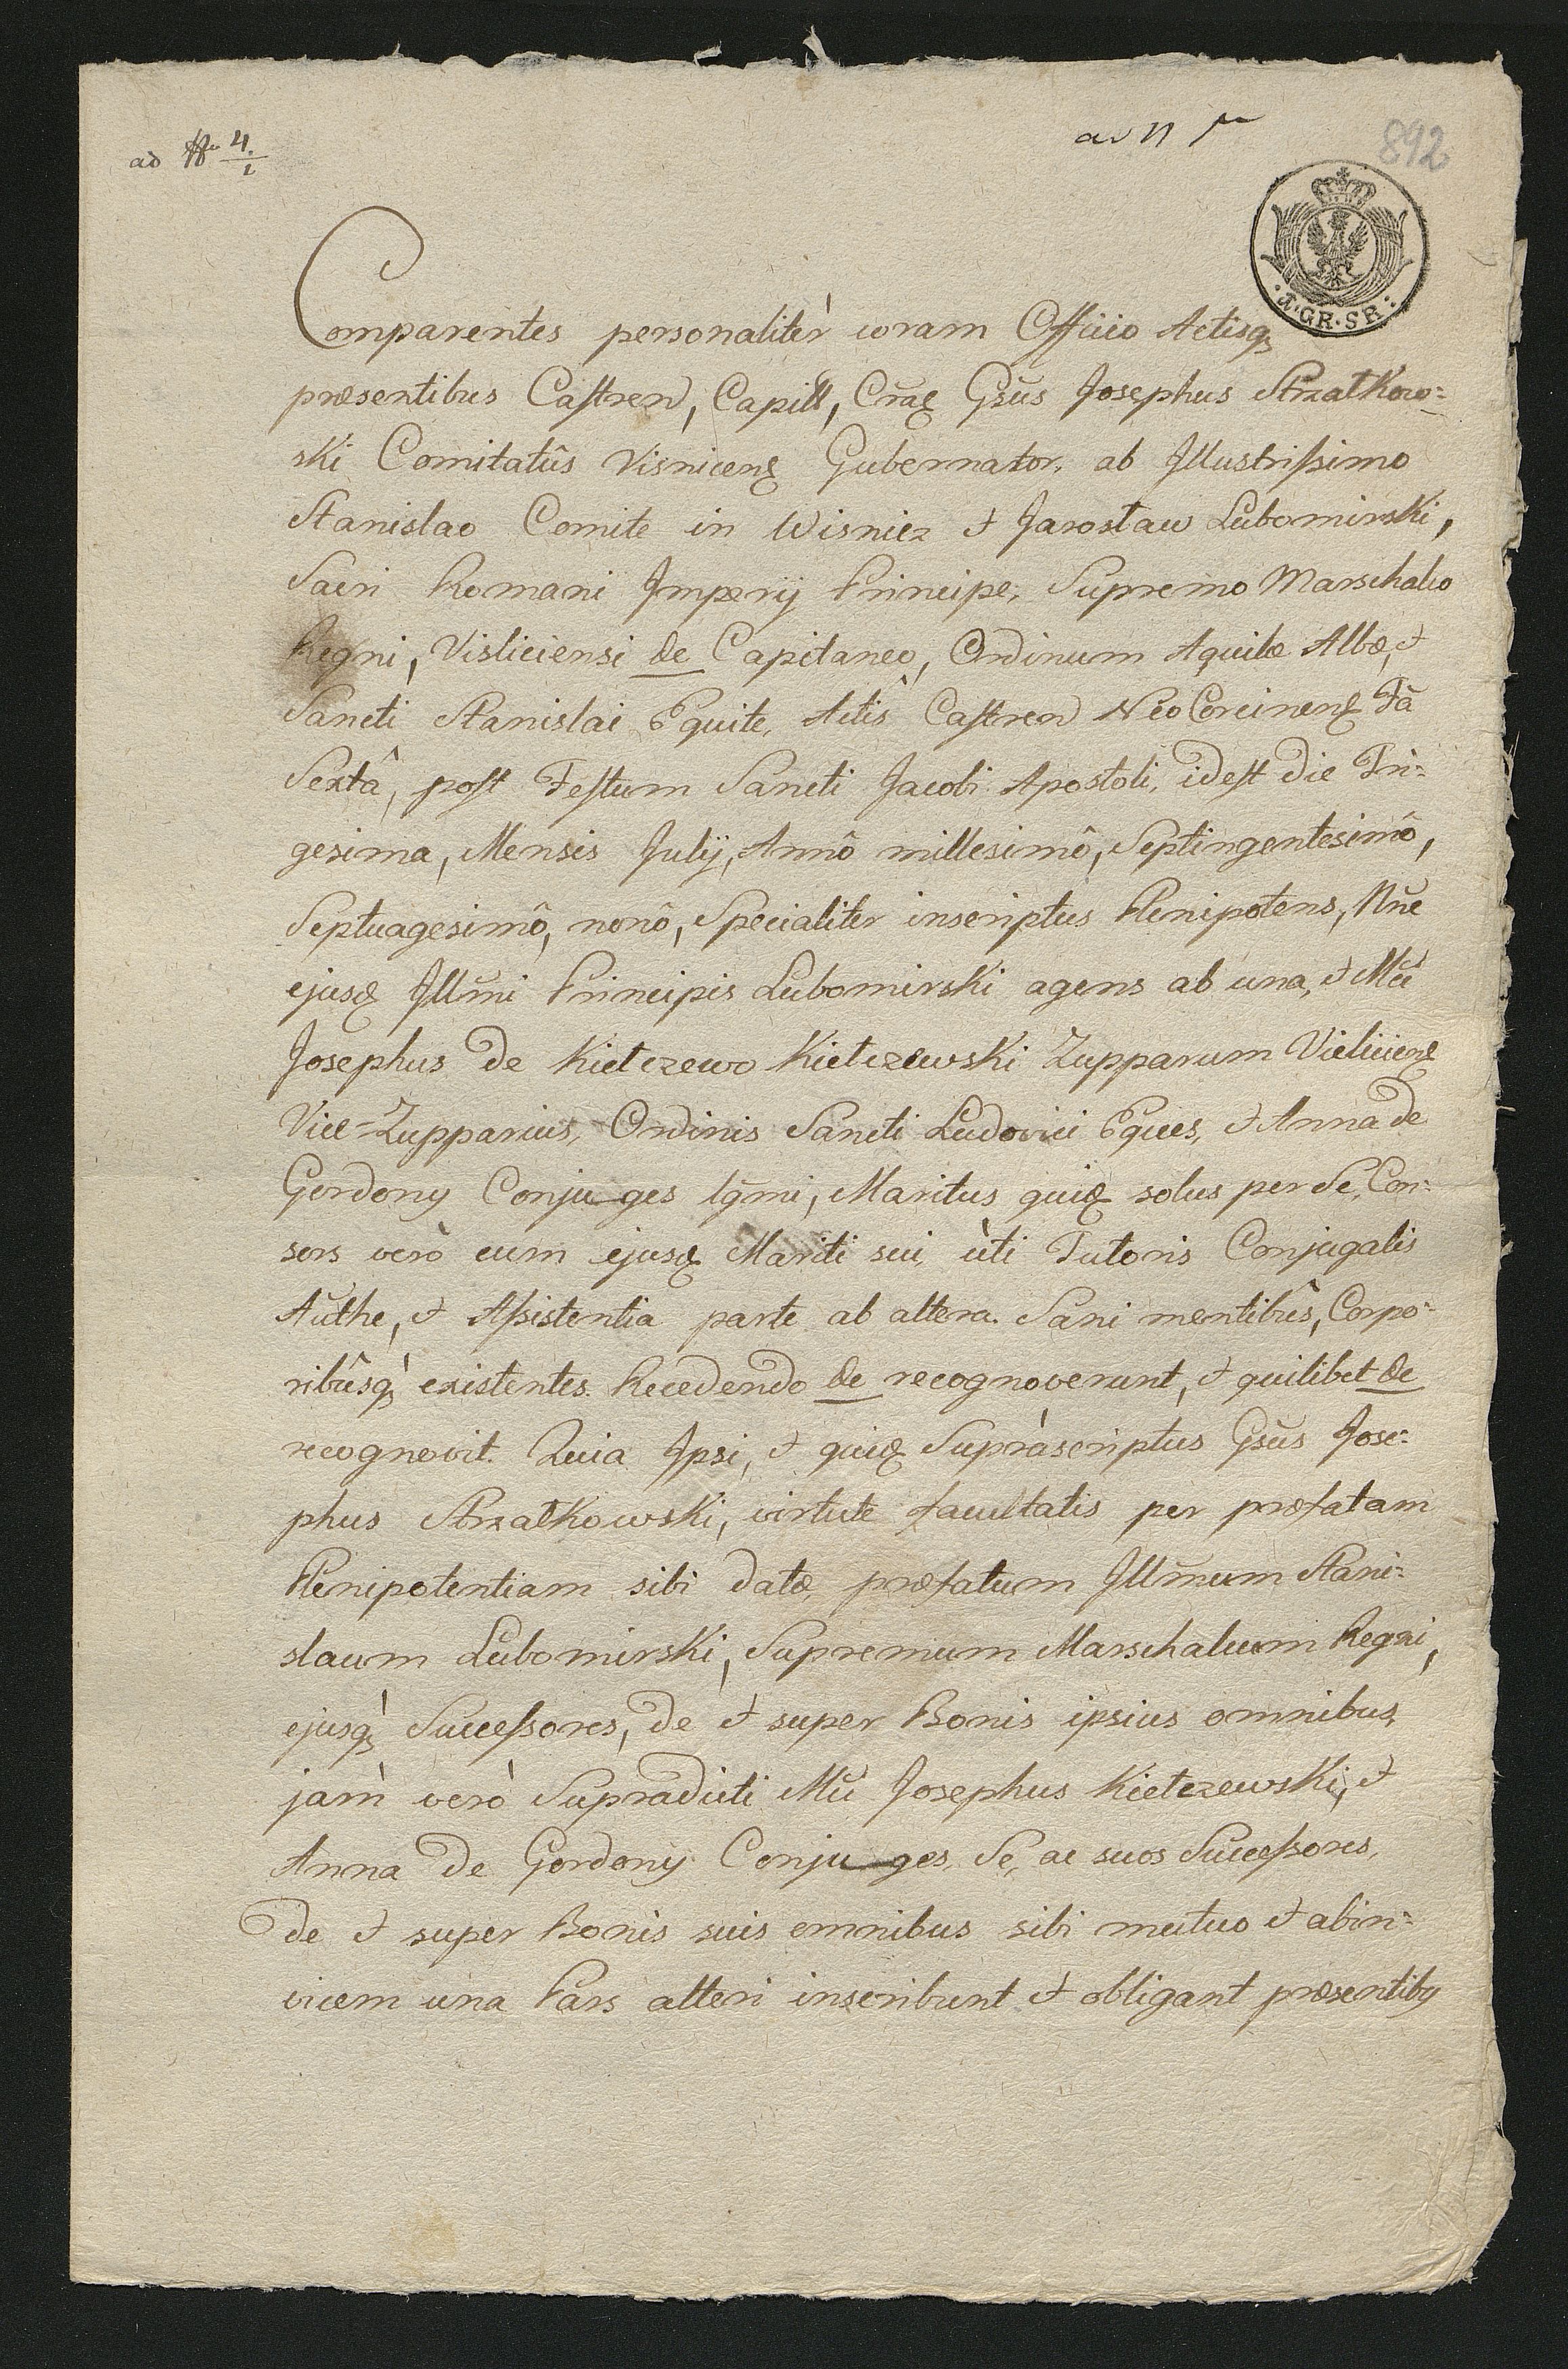 ad № 4/1
ad N 1mo
892
4·GR·SR·
Comparentes personalitèr coram Officio Actisq3
præsentibus Castren, Capitł, Crac̃ Gs̃us Josephus Strzałkow=
ski Comitatûs Visnicens̃ Gubernator, ab Illustrissimo
Stanislao Comite in Wisnicz et Jarosław Lubomirski,
Sacri Romani Imperij Principe, Supremo Marschalco
Regni, Visliciensi &c Capitaneo, Ordinum Aquilæ Albæ, et
Sancti Stanislai Equite, Actis Castren NeoCorcinens̃ Fã
Sextâ, post Festum Sancti Jacobi Apostoli, idest die Tri=
gesima, Mensis Julij, Annô millesimô, Septingentesimô,
Septuagesimô, nonô, Specialiter inscriptus Plenipotens, Nñe
ejusd Illm̃i Principis Lubomirski agens ab una, et Mc̃i
Josephus de Kiełczewo Kiełczewski Zupparum Vieliciens̃
Vice=Zupparius, Ordinis Sancti Ludovici Eques, et Anna de
Gordony Conjuges lg̃mi, Maritus quid solus per Se, Con=
sors verò cum ejusd Mariti sui, ùti Tutoris Conjugalis
Aut̃he, et Assistentia parte ab altera. Sani mentibûs, Corpo=
ribûsq3 existentes. Recedendo &c recognoverunt, et quilibet &c
recognovit. Quia Ipsi, et quid Supràscriptus Gs̃us Jose=
phus Strzałkowski, virtute facultatis per præfatam
Plenipotentiam sibi datæ, præfatum Illm̃um Stani=
slaum Lubomirski, Supremum Marschalcum Regni,
ejusq3 Successores, de et super Bonis ipsius omnibus,
jàm verò Supradicti Mc̃i Josephus Kiełczewski, et
Anna de Gordony Conjuges, Se, ac suos Successores,
de et super Bonis suis omnibus sibi mutuo et abin=
vicem una Pars alteri inscribunt et obligant præsentibq